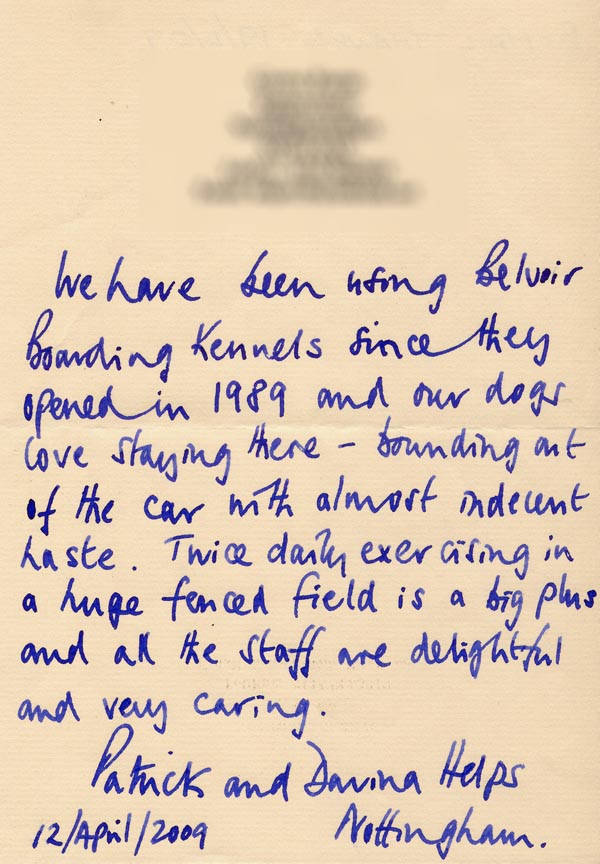 We have been using Belvoir
Boarding Kennels since they
opened in 1989 and our dogs
love staying there - bounding out
of the car with almost indecent
haste. Twice daily exercising in
a huge fenced field is a big plus
and all the staff are delightful
and very caring.
Patrick and Davina Helps
12/April/2009 Nottingham.